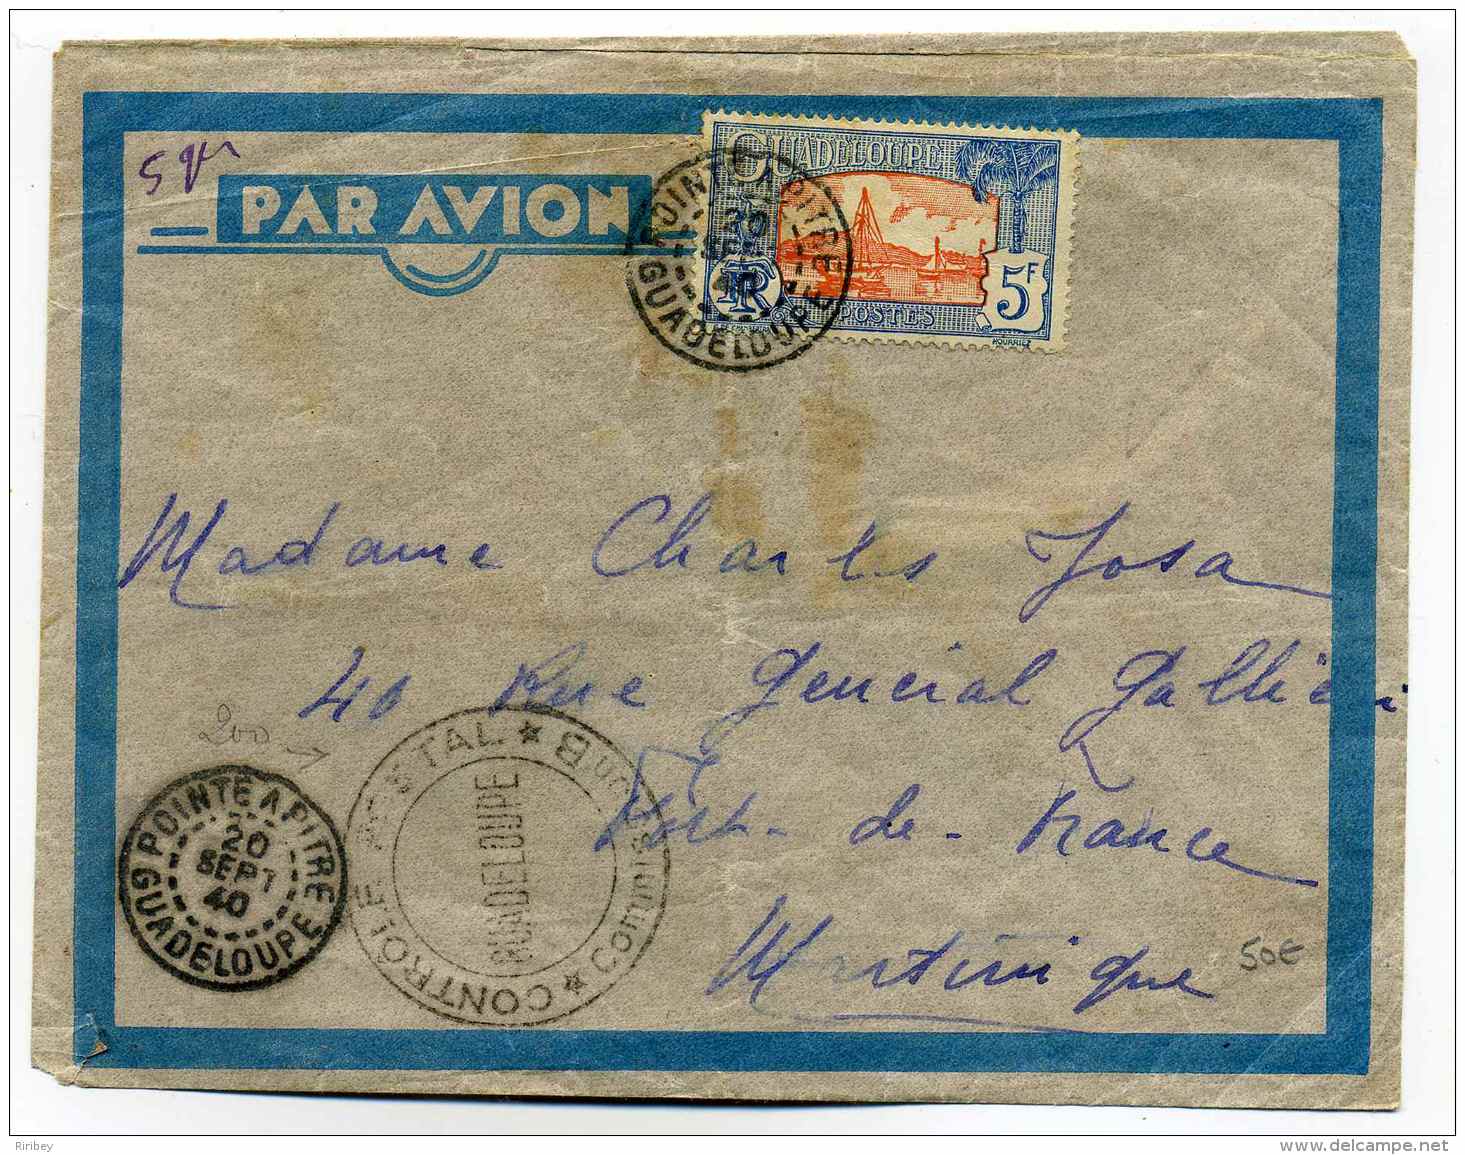 5 gr
PAR AVION
GUADELOUPE
RF
POSTES
5F
POINTE A PITRE
20
SEPT
40
GUADELOUPE
Madame Charles Josa
46 Rue Général Galliéni
Fort-de-France
Martinique
200
POINTE A PITRE
20
SEPT
40
GUADELOUPE
CONTROLE POSTAL ★ Commission B ★
GUADELOUPE
50€
Riribey
www.delcampe.net